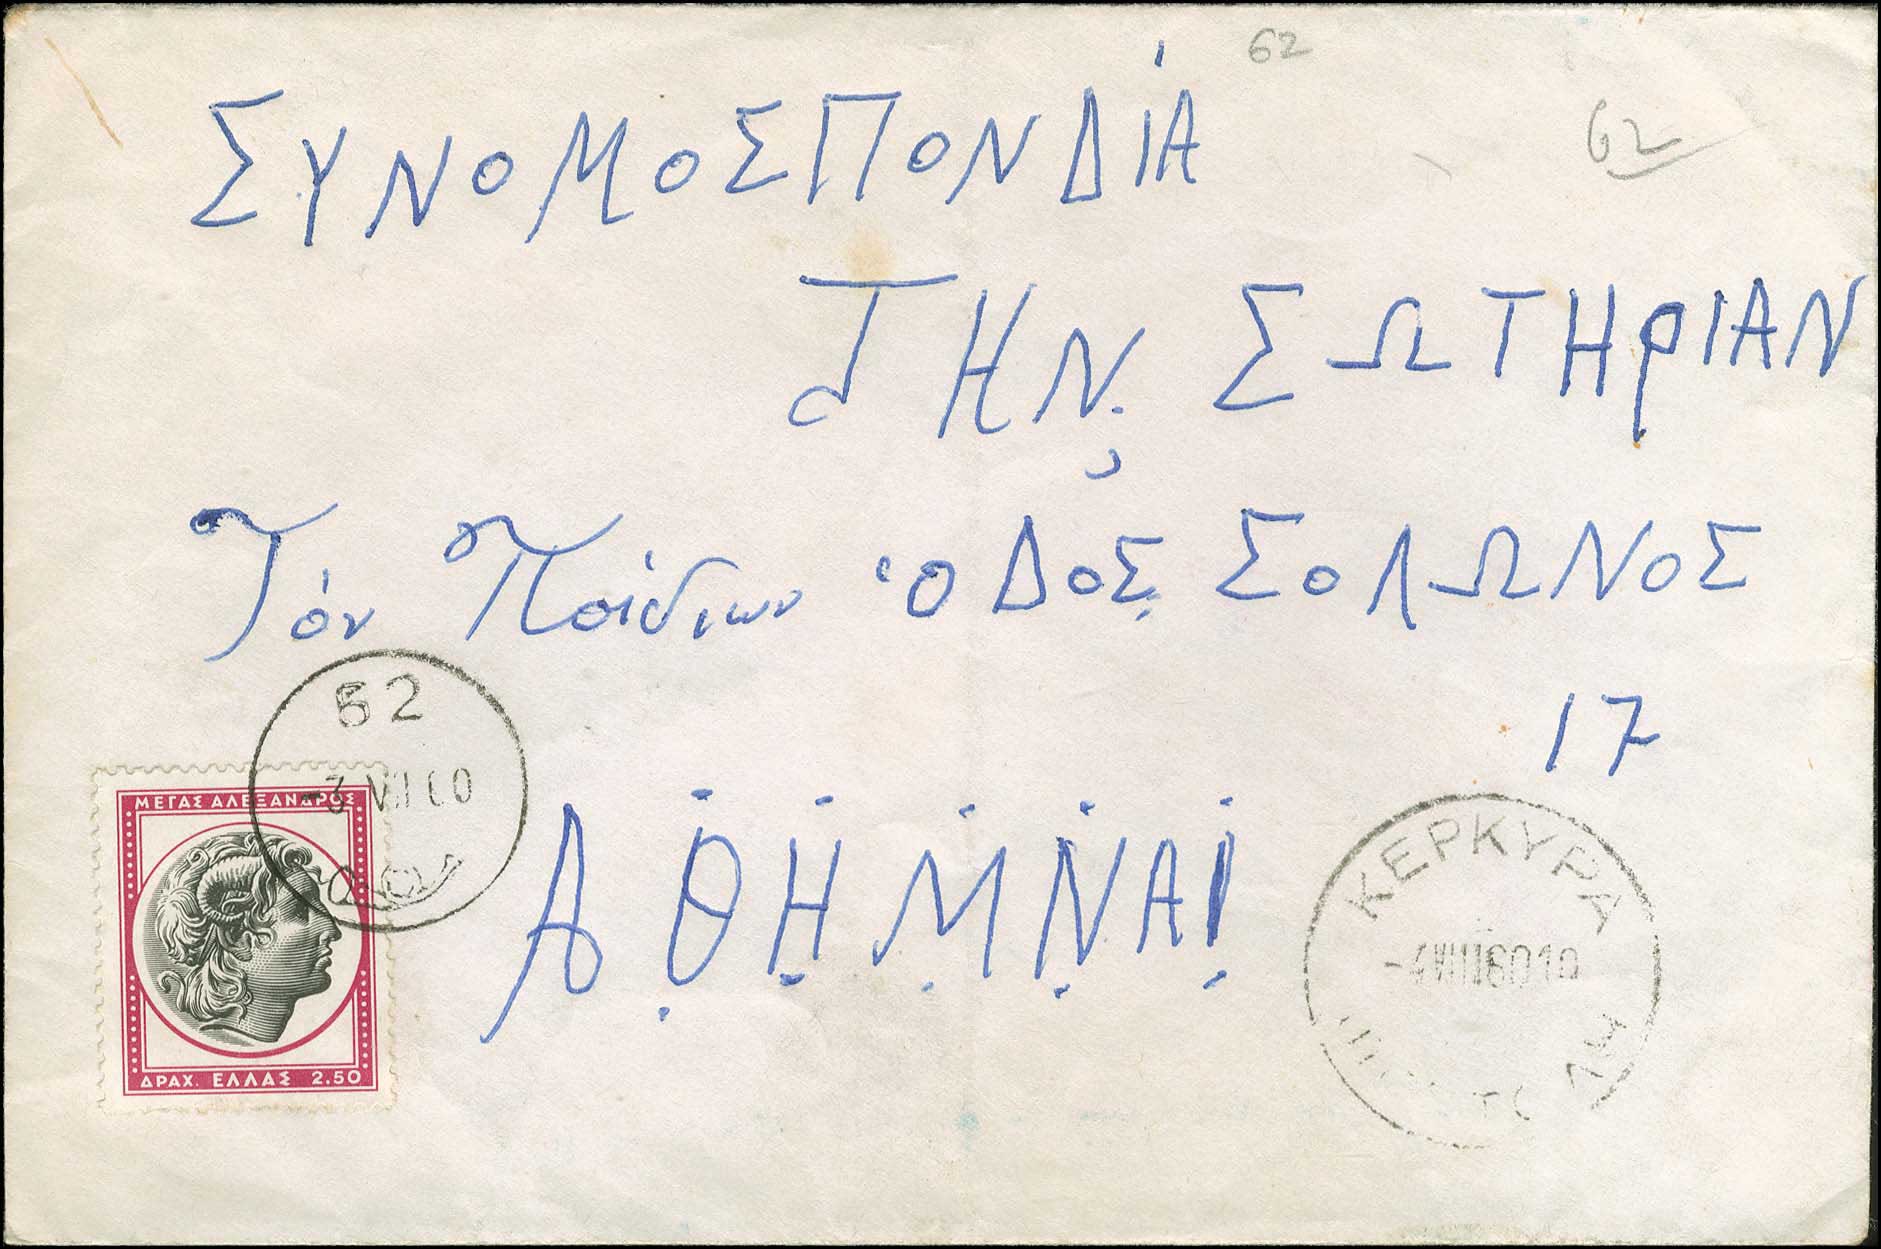 62
62
ΣΥΝΟΜΟΣΠΟΝΔΊΑ
ΤΗΝ ΣΩΤΗΡΙΑΝ
Τόν Παίδιων ὉΔΟΣ ΣΟΛΩΝΟΣ
17
ΑΘΗΜΝΑΙ
52
-3 VIII 60
ΜΕΓΑΣ ΑΛΕΞΑΝΔΡΟΣ
ΔΡΑΧ. ΕΛΛΑΣ 2.50
ΚΕΡΚΥΡΑ
-4VIII6010